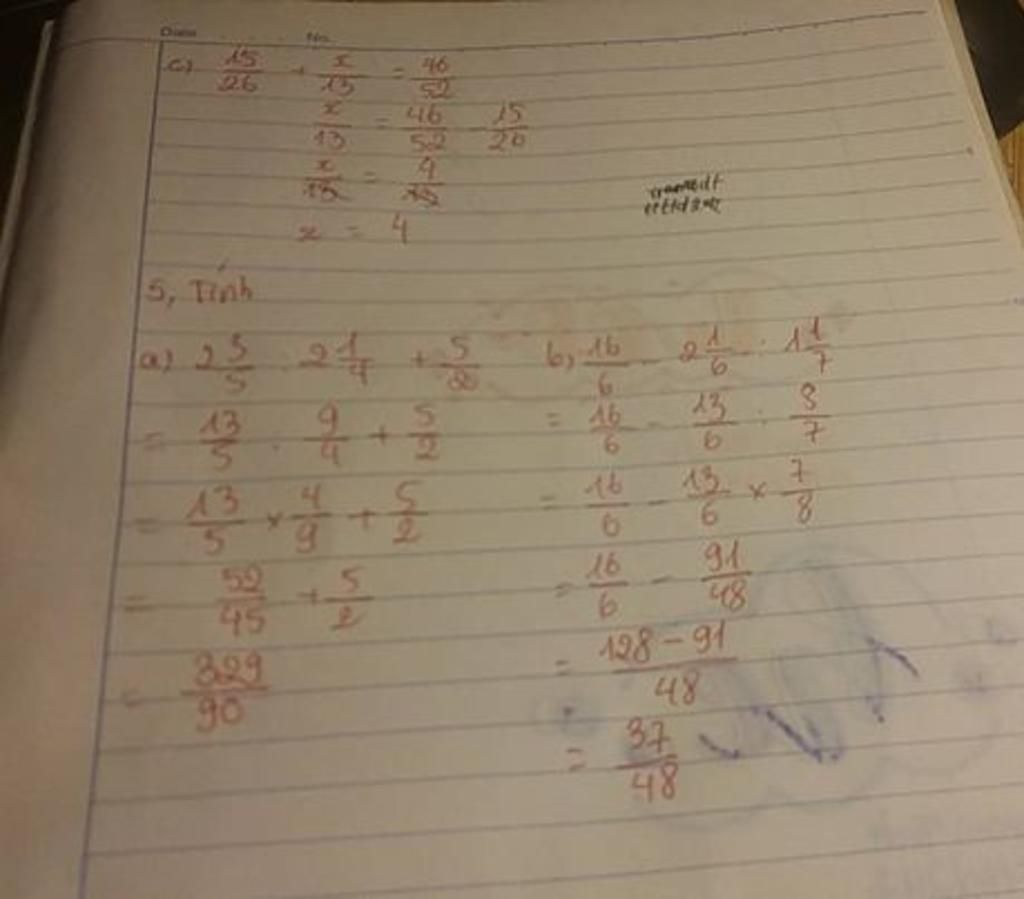 Date No.
c) 15/26 + x/13 = 46/52
x/13 = 46/52 - 15/26
x/13 = 4/13
x = 4
5, Tính
a) 2 3/5 : 2 1/4 + 5/2
= 13/5 : 9/4 + 5/2
= 13/5 × 4/9 + 5/2
= 52/45 + 5/2
= 329/90
b, 16/6 - 2 1/6 : 1 1/7
= 16/6 - 13/6 : 8/7
= 16/6 - 13/6 × 7/8
= 16/6 - 91/48
= 128 - 91/48
= 37/48